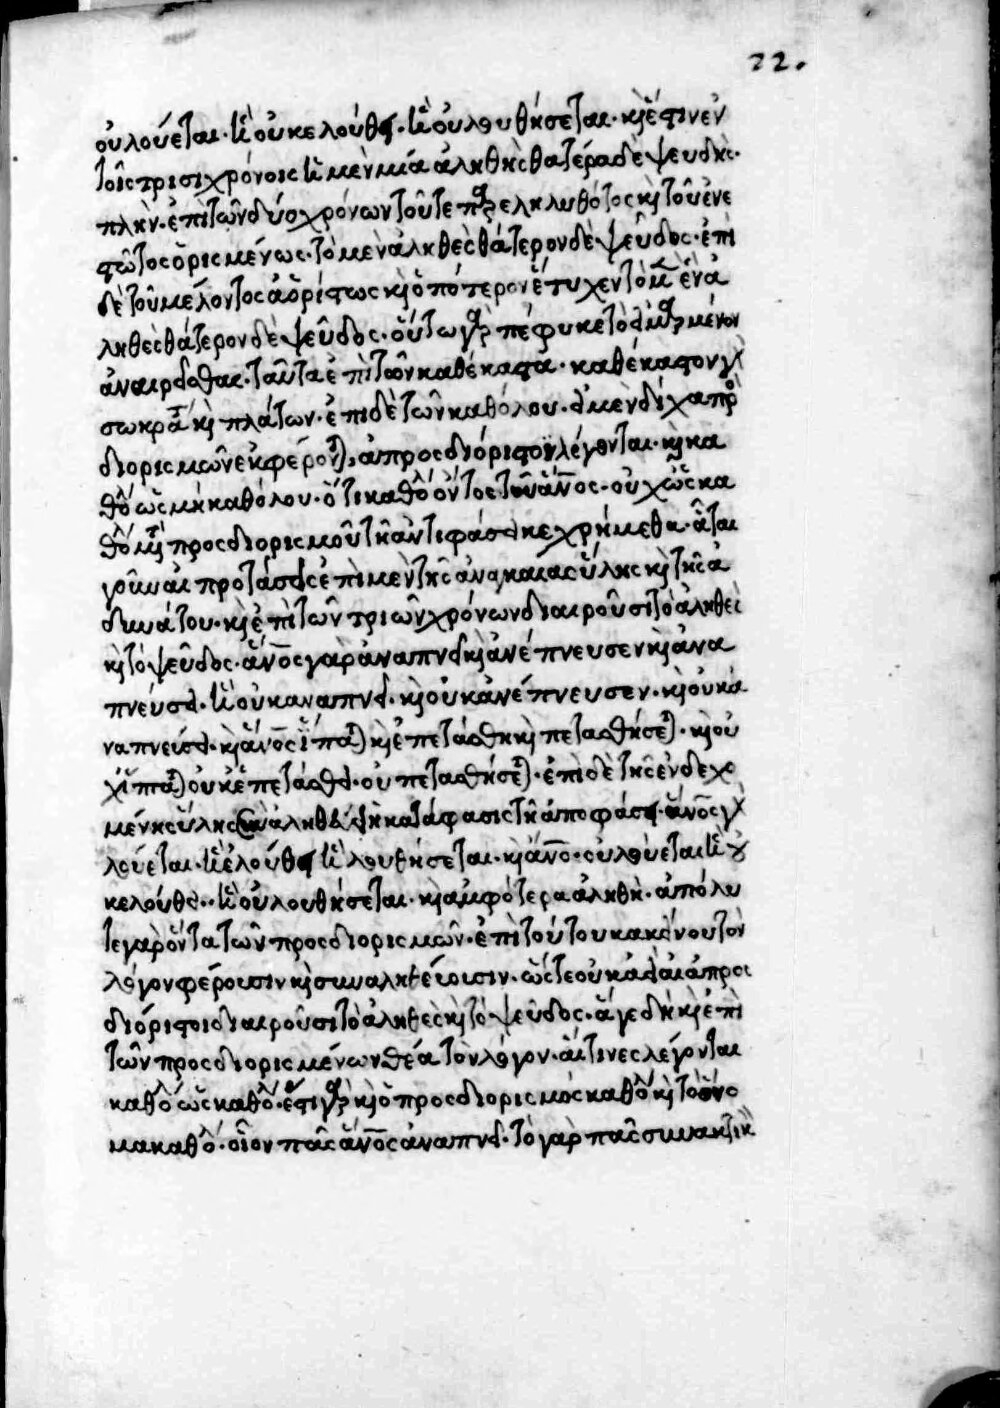 22.
οὐ λούεται· ἢ οὐκ ἐλούθη· ἢ οὐ λουθήσεται· κ̀ ἔστιν ἐν
τοῖς τρισὶ χρόνοις ἡ μὲν μία ἀληθὴς θατέρα δὲ ψευδής·
πλὴν· ἐπὶ τῶν δύο χρόνων τοῦτε παρεληλυθότος κ̀ τοῦ ἐνε
στῶτος ὁρισμένως· τὸ μὲν ἀληθὲς θάτερον δὲ ψεῦδος· ἐπὶ
δὲ τοῦ μέλοντος ἀορίστως κ̀ ὁπότερον ἔτυχεν τὸ μ̀ ἓν ἀ
ληθὲς θάτερον δὲ ψεῦδος· οὕτω γὰρ πέφυκε τὸ μένον
ἀναιρεῖσθαι· ταῦτα ἐπὶ τῶν καθέκαστα· καθέκαστον γὰρ
σωκρά κ̀ πλάτων· ἐπὶ δὲ τῶν καθόλου· εἰ μὲν δίχα προ
διορισμῶν ἐκφέρον), ἀπροσδιόριστοι λέγονται· κ̀ κα
θό ὡς μὴ καθόλου· ὅτι καθό ὄντος τοῦ ἄνος· οὐχ ὡς κα
θό προσδιορισμοῦ τῆ ἀντιφάσει κεχρήμεθα· αἵται
γοῦν αἱ προτάσεις ἐπὶ μὲν τῆς ἀναγκαίας ὕλης κ̀ τῆς ἀ
δυνάτου· κ̀ ἐπὶ τῶν τριῶν χρόνων διαιροῦσι τὸ ἀληθὲς
κ̀ τὸ ψεῦδος· ἄνος γὰρ ἀναπνεῖ κ̀ ἀνέπνευσεν κ̀ ἀνα
πνεύσει· ἢ οὐκ ἀναπνεῖ· κ̀ οὐκ ἀνέπνευσεν· κ̀ οὐκ ἀ
ναπνεύσει· κ̀ ἄνος ἵπτα) κ̀ ἐπετάσθη κ̀ πετασθήσε)· κ̀ οὐ
χ ἵπτα) οὐκ ἐπετάσθη· οὐ πετασθήσε)· ἐπὶ δὲ τῆς ἐνδεχο
μένης ὕλης συναληθεύει ἡ κατάφασις τῆ ἀποφάσει· ἄνος γὰρ
λούεται· ἢ ἐλούθη ἢ λουθήσεται· κ̀ ἄνος· οὐ λούεται ἢ οὐ
κ ἐλούθη·· ἢ οὐ λουθήσεται· κ̀ ἀμφότερα ἀληθῆ· ἀπόλυ
τε γὰρ ὄντα τῶν προσδιορισμῶν· ἐπὶ τούτου κακείνου τὸν
λόγον φέρουσιν κ̀ συναληθεύουσιν· ὥστε οὐκ ἀεὶ αἱ ἀπροσ
διόριστοι διαιροῦσι τὸ ἀληθὲς κ̀ τὸ ψεῦδος· ἄγε δὴ κ̀ ἐπὶ
τῶν προσδιορισμένων θέα τὸν λόγον· αἵτινες λέγονται
καθό ὡς καθό· ἔστι γὰρ κ̀ ὁ προσδιορισμὸς καθό κ̀ τὸ ὄνο
μα καθό· οἷον πᾶς ἄνος ἀναπνεῖ· τὸ γὰρ πᾶς συνακτικὸ